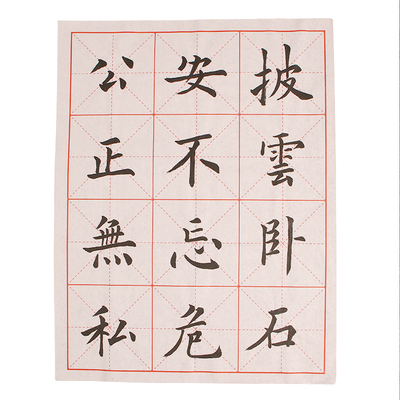 披雲卧石
安不忘危
公正無私